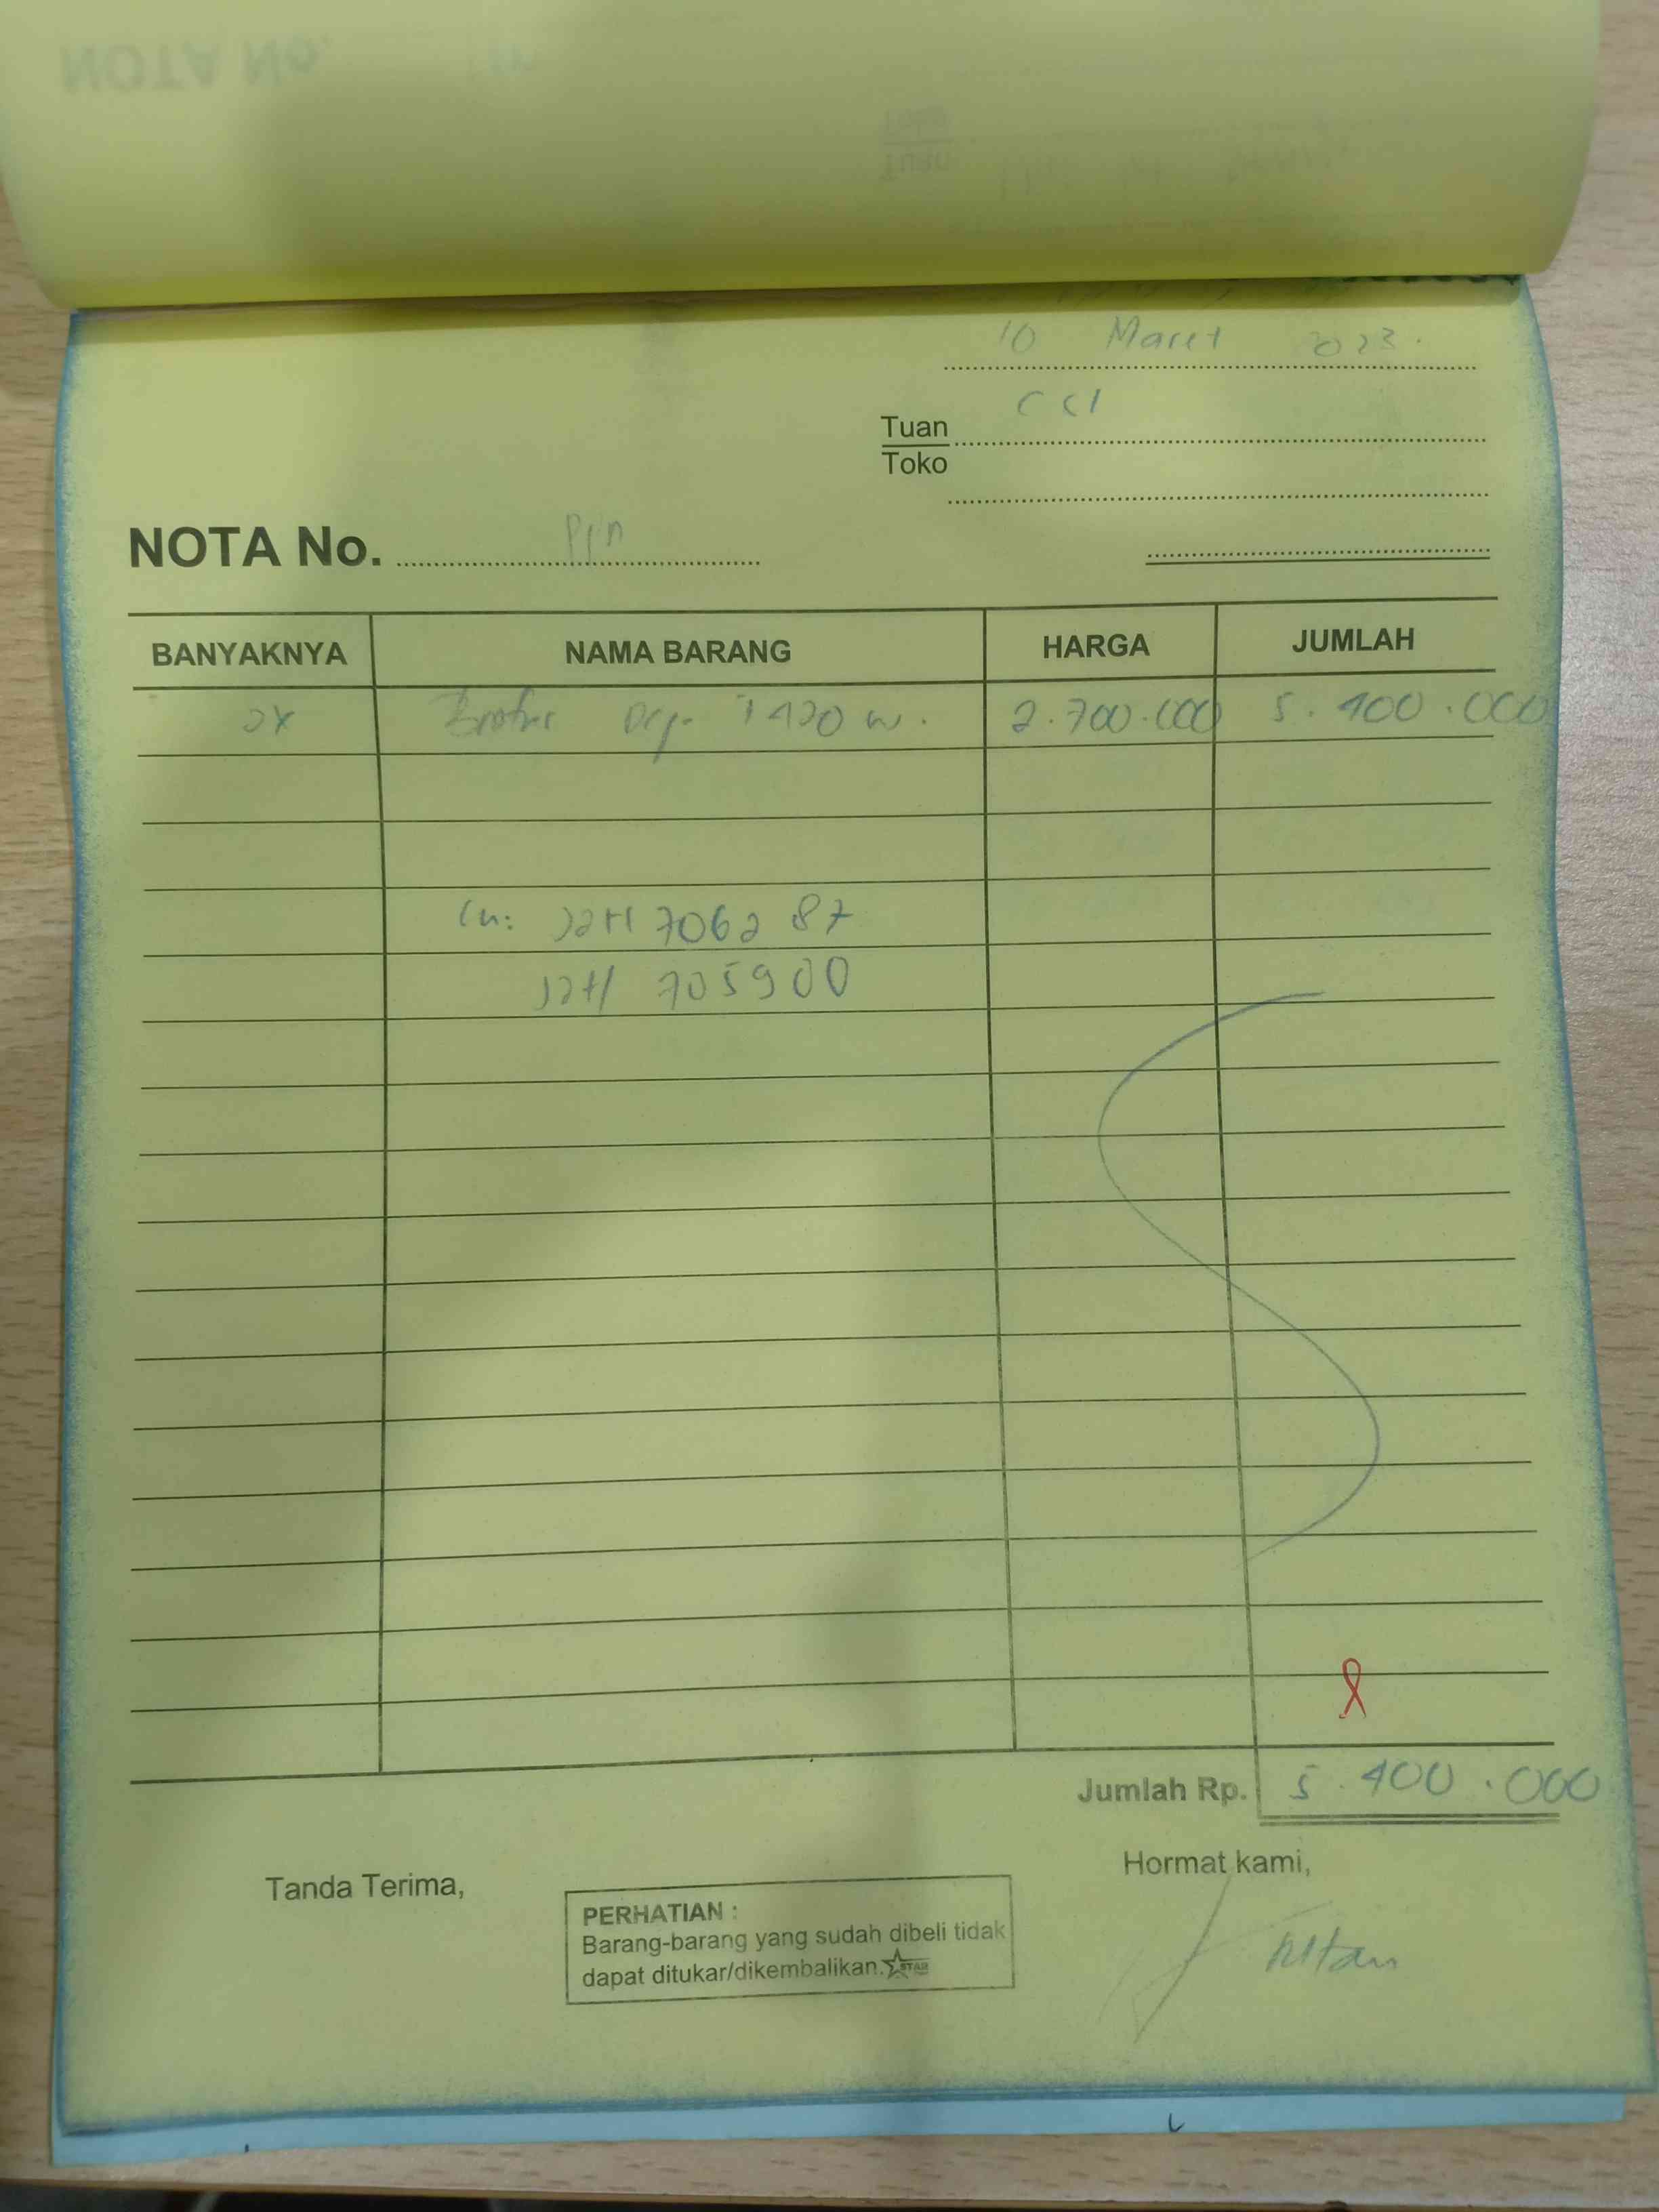 10 Maret 2023.
Tuan CCI
Toko
NOTA No. PPn
BANYAKNYA NAMA BARANG HARGA JUMLAH
2x Brother Dcp T420 W. 2.700.000 5.400.000
706287
705900
Jumlah Rp. 5.400.000
Tanda Terima,
Hormat kami,
PERHATIAN :
Barang-barang yang sudah dibeli tidak
dapat ditukar/dikembalikan. STAR